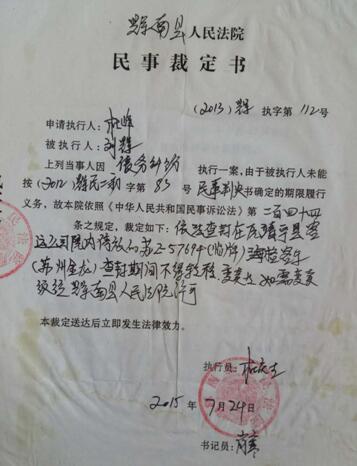 黟南县人民法院
民事裁定书
(2013)黟执字第112号
申请执行人：
被执行人：刘辉
上列当事人因 债务纠纷 执行一案，由于被执行人未能
按(2012)黟民二初字第83号民事判决书确定的期限履行
义务，故本院依照《中华人民共和国民事诉讼法》第二百四十四
条之规定，裁定如下：依法查封在
院内停放的苏Z-57694(临牌)海格客车
(苏州金龙)查封期间不得转移、变卖，如需变卖
须经黟南县人民法院许可
本裁定送达后立即发生法律效力。
执行员：
2015年7月24日
书记员：